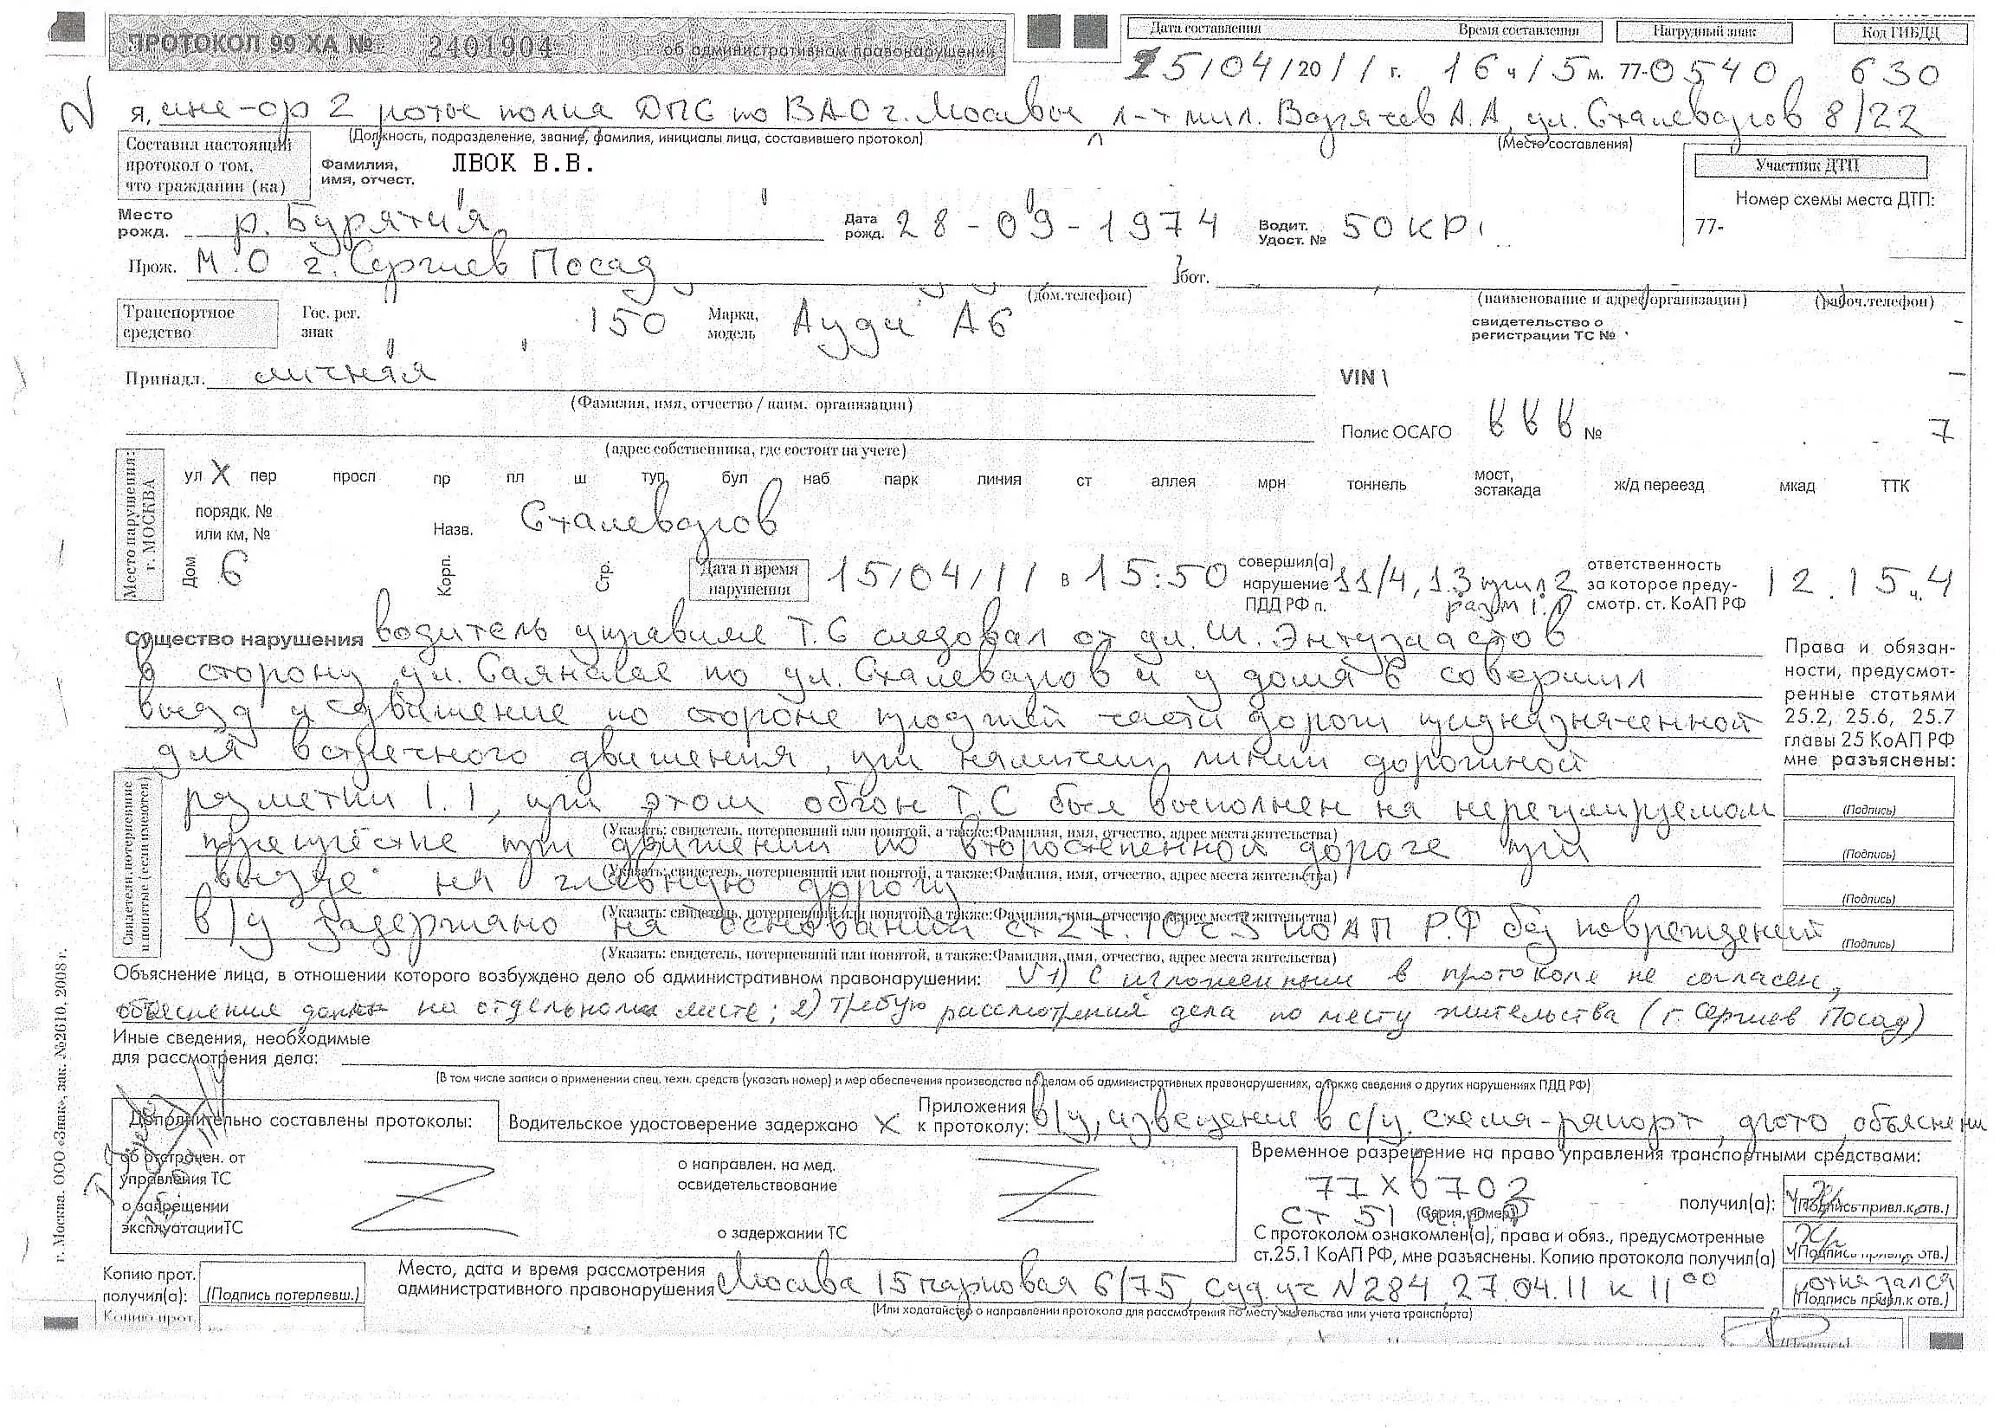 ПРОТОКОЛ 99 ХА № 2401904 об административном правонарушении
Дата составления Время составления Нагрудный знак Код ГИБДД
15/04/2011 г. 16 ч 15 м. 77-0540 630
Я, инс-ор 2 роты полка ДПС по ВАО г. Москвы л-т мил. А.А, ул. Сталеваров 8/22
(Должность, подразделение, звание, фамилия, инициалы лица, составившего протокол) (Место составления)
Составил настоящий протокол о том, что гражданин (ка)
Фамилия, имя, отчест. ЛВОК В.В.
Участник ДТП
Номер схемы места ДТП:
77-
Место рожд. р. Бурятия Дата рожд. 28-09-1974 Водит. Удост. № 50КР
Прож. М.О г. Сергиев Посад бот.
(дом.телефон) (наименование и адрес организации) (рабоч.телефон)
Транспортное средство Гос. рег. знак 150 Марка, модель Ауди А6 свидетельство о регистрации ТС №
Принадл. личная VIN
(Фамилия, имя, отчество / наим. организации)
Полис ОСАГО ВВВ № 7
(адрес собственника, где состоит на учете)
Место нарушения: г. МОСКВА
ул X пер просп пр пл ш туп. бул наб парк линия ст аллея мрн тоннель мост, эстакада ж/д переезд мкад ТТК
порядк. № или км, № Назв. Сталеваров
Дом 6 Корп. Стр. Дата и время нарушения 15/04/11 в 15:50 совершил(а) нарушение ПДД РФ п. 11/4, 1.3 прил 2 разм 1.1 ответственность за которое преду- смотр. ст. КоАП РФ 12.15 ч. 4
Существо нарушения водитель управляя Т.С следовал от ул. Ш. Энтузиастов
в сторону ул. Саянская по ул. Сталеваров и у дома 6 совершил
выезд и движение по стороне проезжей части дороги предназначенной
для встречного движения, при наличии линии дорожной
разметки 1.1, при этом обгон Т.С был выполнен на нерегулируемом
перекрёстке при движении по второстепенной дороге при
выезде на главную дорогу
в/у задержано на основании ст 27.10 ч 3 КоАП Р.Ф без повреждений
Права и обязан-
ности, предусмот-
ренные статьями
25.2, 25.6, 25.7
главы 25 КоАП РФ
мне разъяснены:
Свидетели, потерпевшие и понятые (если имеются)
(Указать: свидетель, потерпевший или понятой, а также: Фамилия, имя, отчество, адрес места жительства) (Подпись)
(Указать: свидетель, потерпевший или понятой, а также: Фамилия, имя, отчество, адрес места жительства) (Подпись)
(Указать: свидетель, потерпевший или понятой, а также: Фамилия, имя, отчество, адрес места жительства) (Подпись)
(Указать: свидетель, потерпевший или понятой, а также: Фамилия, имя, отчество, адрес места жительства) (Подпись)
Объяснение лица, в отношении которого возбуждено дело об административном правонарушении: V 1) С изложенным в протоколе не согласен,
объяснения даны на отдельном листе; 2) Требую рассмотрения дела по месту жительства (г. Сергиев Посад)
Иные сведения, необходимые
для рассмотрения дела:
(В том числе записи о применении спец. техн. средств (указать номер) и мер обеспечения производства по делам об административных правонарушениях, а также сведения о других нарушениях ПДД РФ)
Дополнительно составлены протоколы: Водительское удостоверение задержано X Приложения к протоколу: в/у, извещение в с/у. схема-рапорт, фото, объяснени
об отстранен. от управления ТС
о направлен. на мед. освидетельствование
о запрещении эксплуатации ТС
о задержании ТС
Временное разрешение на право управления транспортными средствами:
77 ХВ 702 получил(а): (Подпись привл.к отв.)
ст 51 к.рф (Серия, номер)
С протоколом ознакомлен(а), права и обяз., предусмотренные
ст.25.1 КоАП РФ, мне разъяснены. Копию протокола получил(а) (Подпись привл. к отв.)
Копию прот. получил(а): (Подпись потерпевш.)
Место, дата и время рассмотрения административного правонарушения Москва 15 парковая 6/75, суд. уч N 284, 27.04.11 к 11 00 отказался (Подпись привл.к отв.)
(Или ходатайство о направлении протокола для рассмотрения по месту жительства или учета транспорта)
Копию прот.
г. Москва. ООО «Знак», зак. №2610, 2008 г.